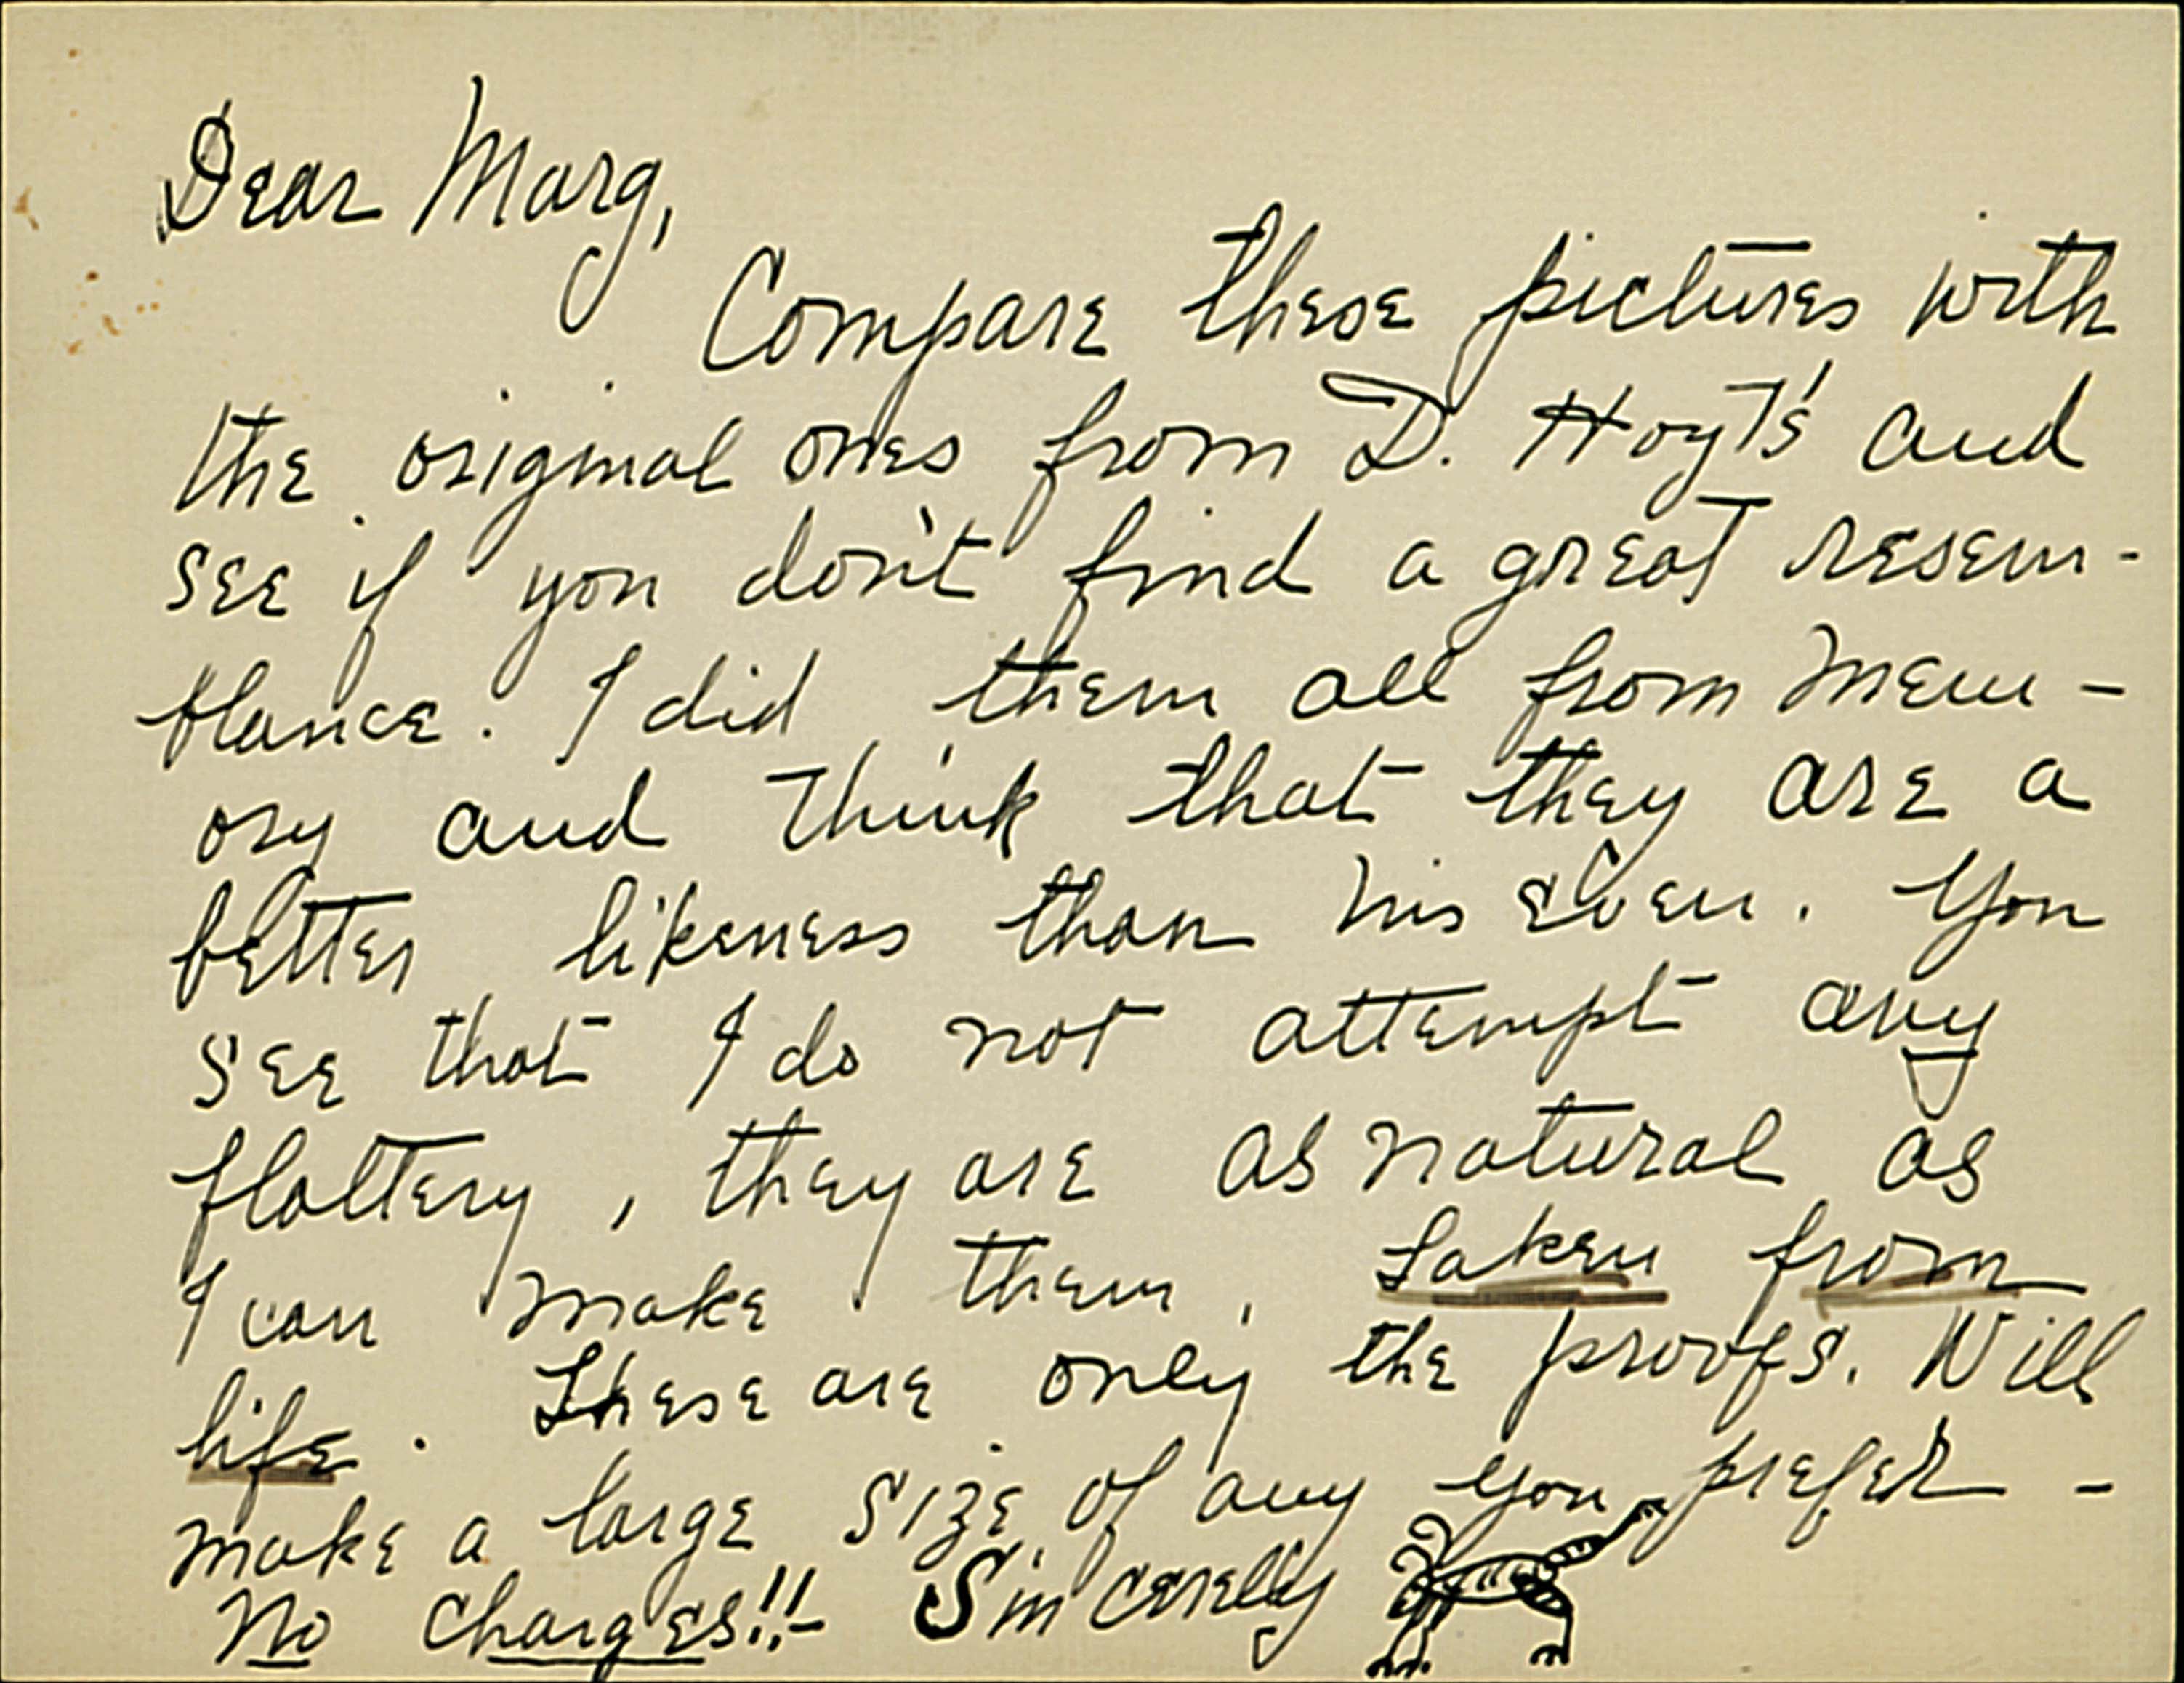 Dear Marg,
Compare these pictures with
the original ones from D. Hoyt's and
see if you don't find a great resem-
blance. I did them all from mem-
ory and think that they are a
better likeness than his even. You
see that I do not attempt any
flattery, they are as natural as
I can make them, taken from
life. These are only the proofs. Will
make a large size of any you prefer -
No charges!!- Sincerely